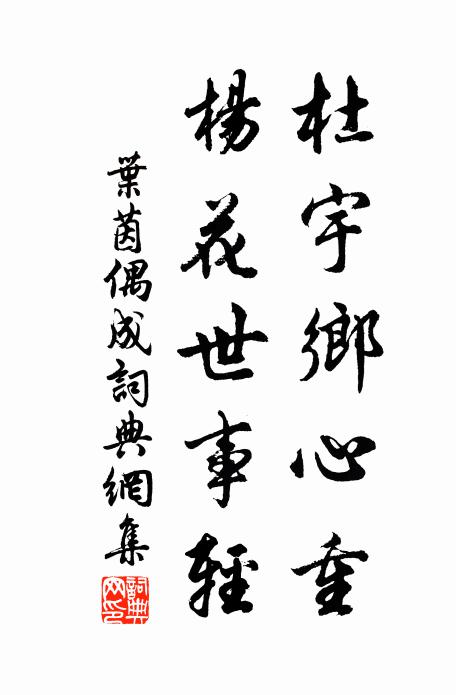 杜宇鄉心重
楊花世事輕
葉茵偶成詞典網集
詞典網印